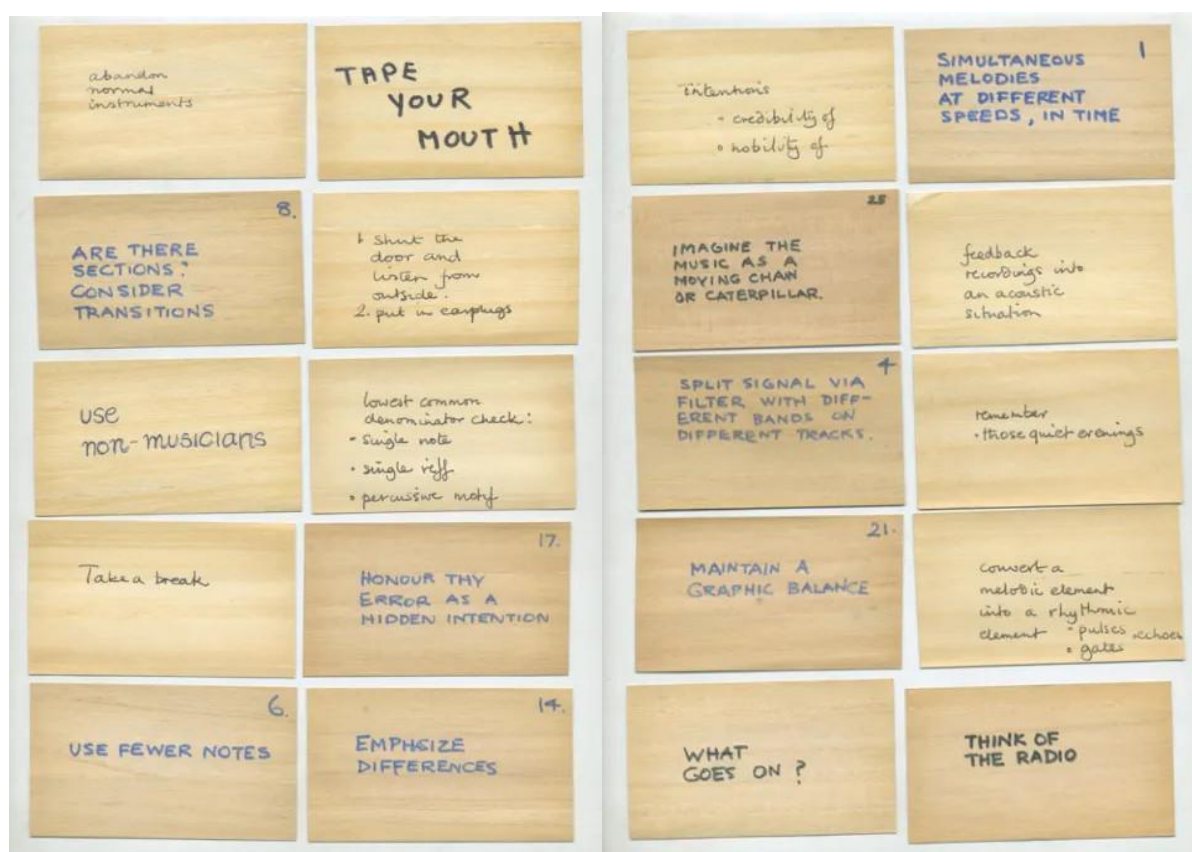 abandon
normal
instruments
TAPE
YOUR
MOUTH
8.
ARE THERE
SECTIONS?
CONSIDER
TRANSITIONS
1. Shut the
door and
listen from
outside.
2. put in earplugs
USE
non-musicians
lowest common
denominator check:
• single note
• single riff
• percussive motif
Take a break
17.
HONOUR THY
ERROR AS A
HIDDEN INTENTION
6.
USE FEWER NOTES
14.
EMPHSIZE
DIFFERENCES
intentions
- credibility of
• nobility of
1
SIMULTANEOUS
MELODIES
AT DIFFERENT
SPEEDS, IN TIME
25
IMAGINE THE
MUSIC AS A
MOVING CHAIN
OR CATERPILLAR.
feedback
recordings into
an acoustic
situation
4
SPLIT SIGNAL VIA
FILTER WITH DIFF-
ERENT BANDS ON
DIFFERENT TRACKS.
remember
• those quiet evenings
21.
MAINTAIN A
GRAPHIC BALANCE
convert a
melodic element
into a rhythmic
element • pulses • echoes
• gates
WHAT
GOES ON?
THINK OF
THE RADIO